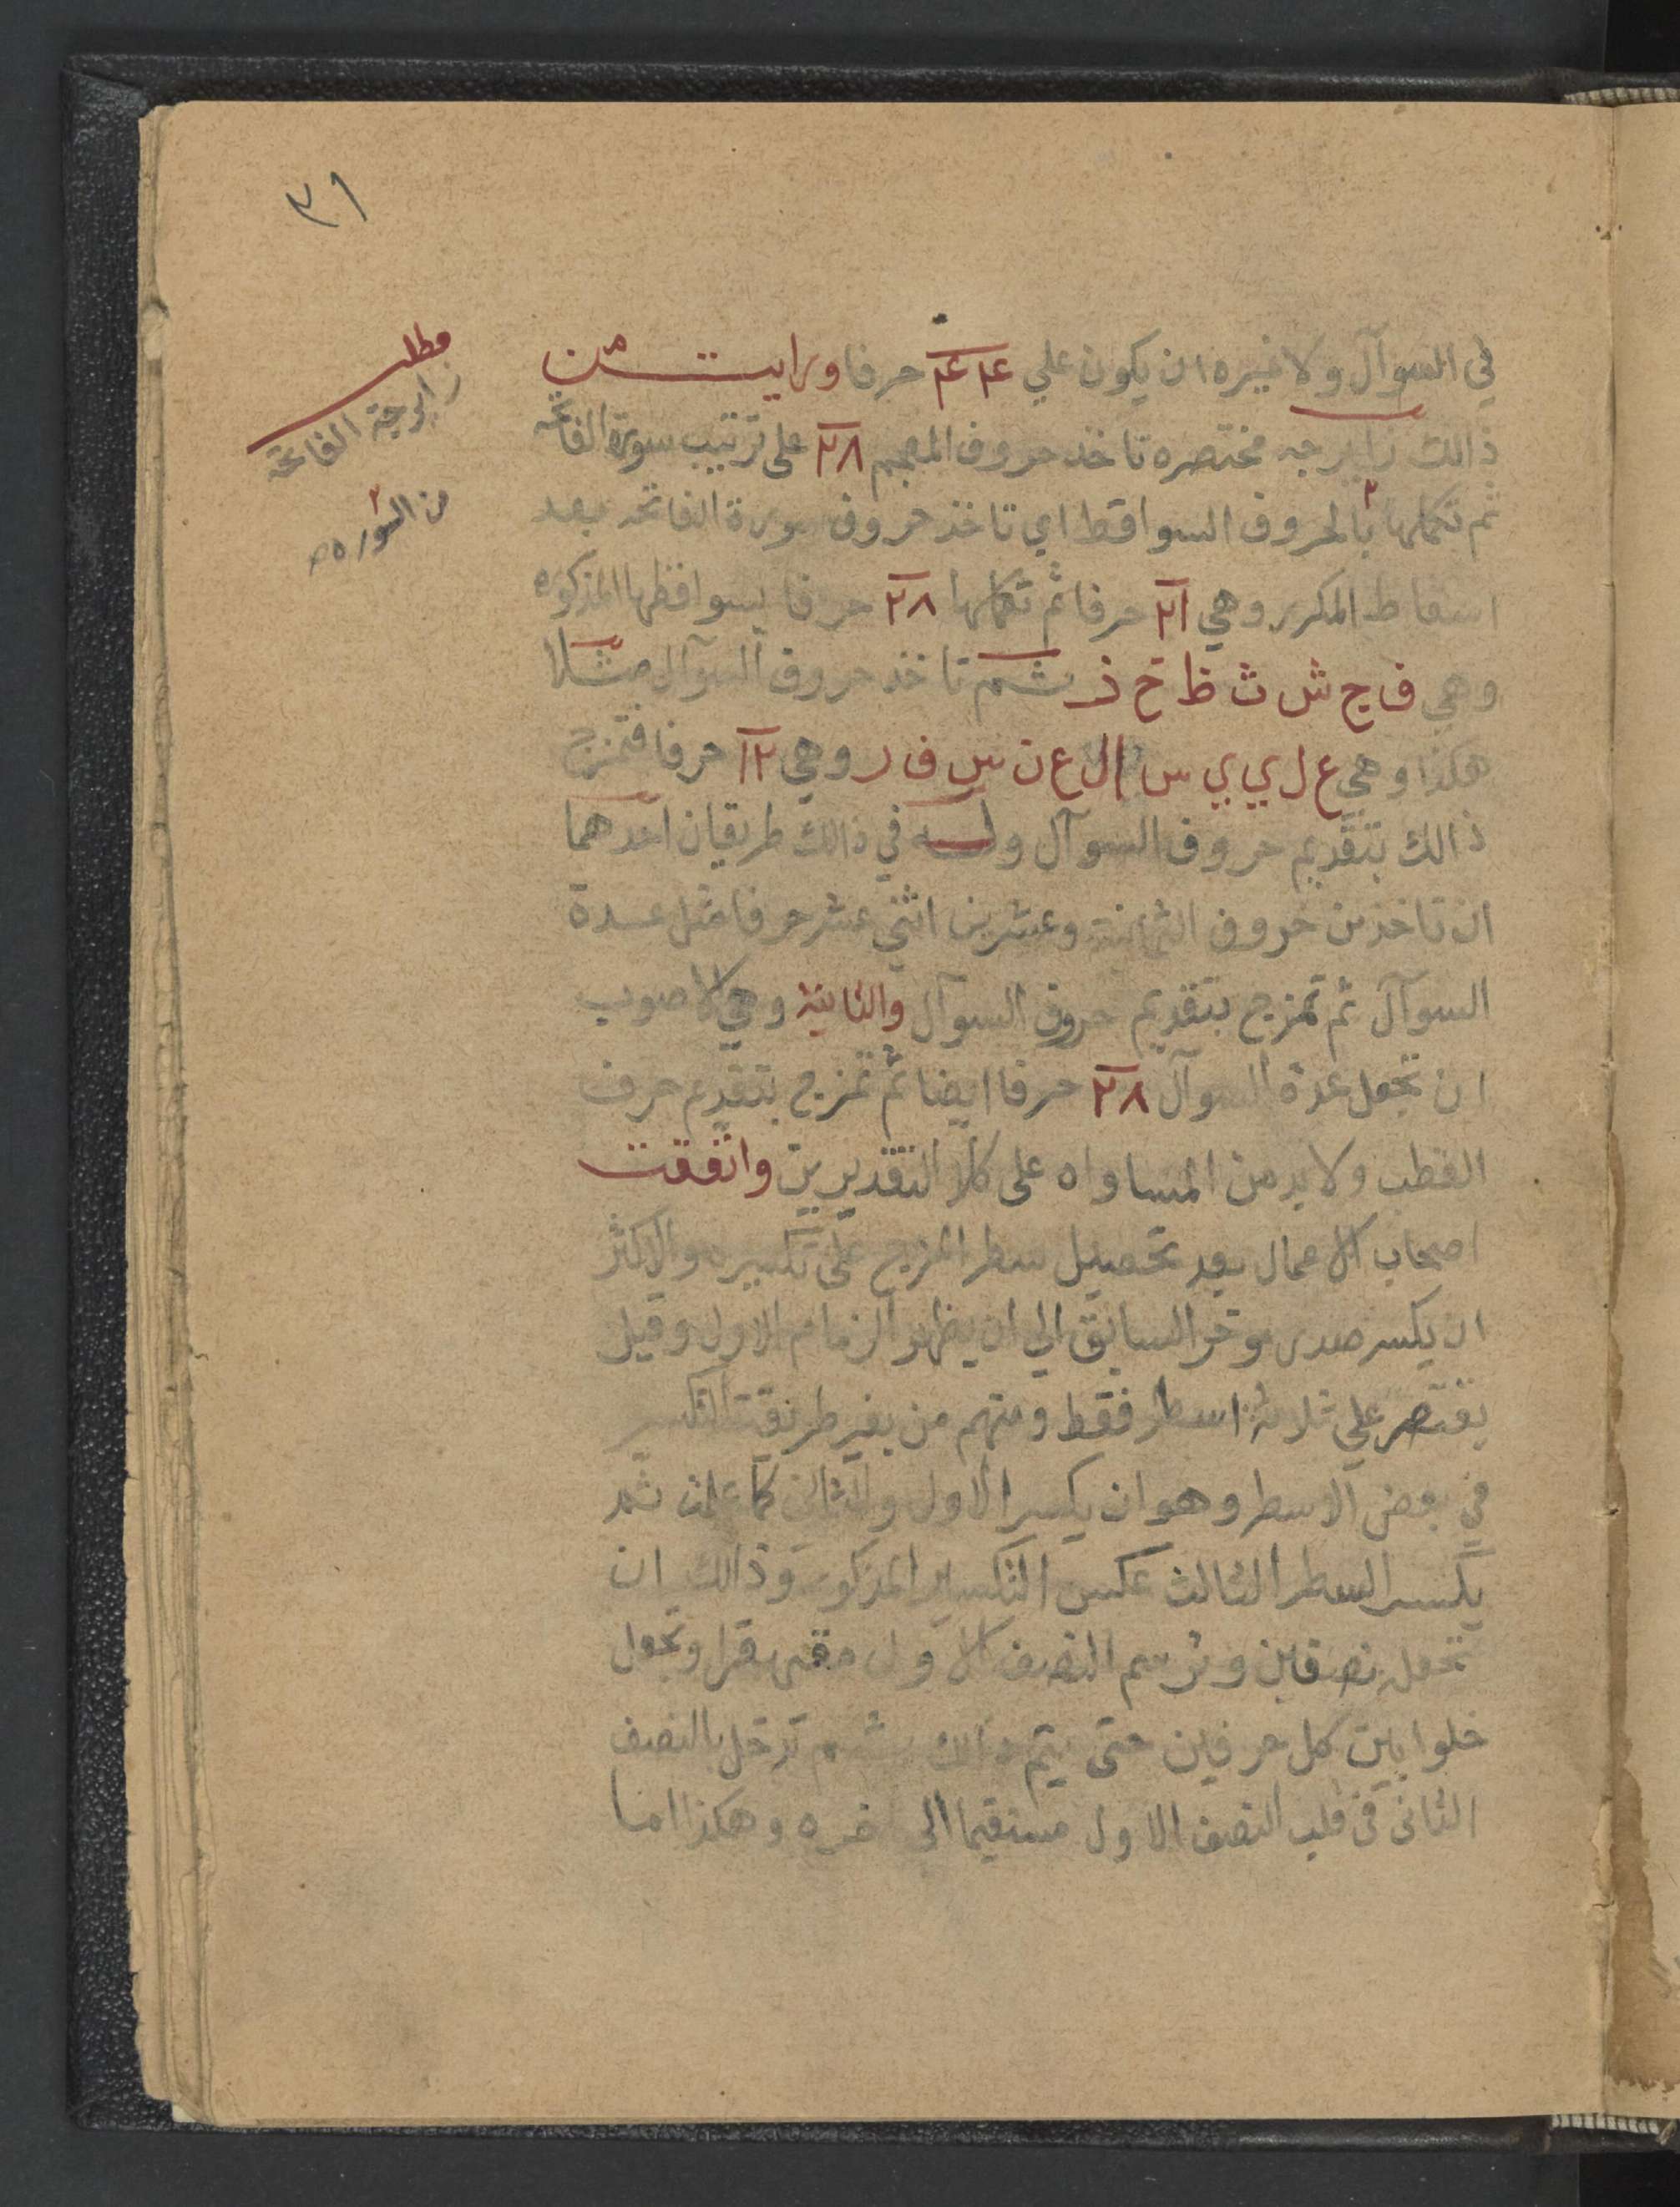 ٣١
في السوآل ولا غيره ان يكون علي ٤٤ حرفا ورايت من
ذالك زايرجه مختصره تاخذ حروف المعجم ٢٨ على ترتيب سورة الفاتحه
ثم تكملها بالحروف السواقط اي تاخذ حروف سورة الفاتحه بعد
اسقاط المكرر وهي ٢١ حرفا ثم تكملها ٢٨ حرفا بسواقطها المذكوره
وهي ف ج ش ث ظ خ ز ثم تاخذ حروف السوآل مثلا
هكذا وهي ع ل ي ي س ا ل ع ن س ف ر وهي ١٢ حرفا فتمزج
ذالك بتقديم حروف السوآل وله في ذالك طريقان احدهما
ان تاخذ من حروف الثمانية وعشرين اثني عشر حرفا مثل عدة
السوآل ثم تمزج بتقديم حروف السوآل والثانية وهي الاصوب
ان تجعل عدة السوآل ٢٨ حرفا ايضا ثم تمزج بتقديم حرف
القطب ولا بد من المساواه على كلا التقديرين واتفقت
اصحاب الاعمال بعد تحصيل سطر المزج على تكسيره والاكثر
ان يكسر صدر موخر السابق الي ان يظهر الزمام الاول وقيل
يقتصر علي ثلاثة اسطر فقط ومنهم من يغير طريقت التكسير
في بعض الاسطر وهو ان يكسر الاول والثاني كما علمت ثم
يكسر السطر الثالث عكس التكسير المذكور وذالك ان
تجعله نصفين وترسم النصف الاول مقهقرا وتجعل
خلوا بين كل حرفين حتى يتم ذالك ثم تدخل بالنصف
الثاني في قلب النصف الاول مستقيما الى اخره وهكذا اما
مطلب
زايرجة الفاتحة
من السوره